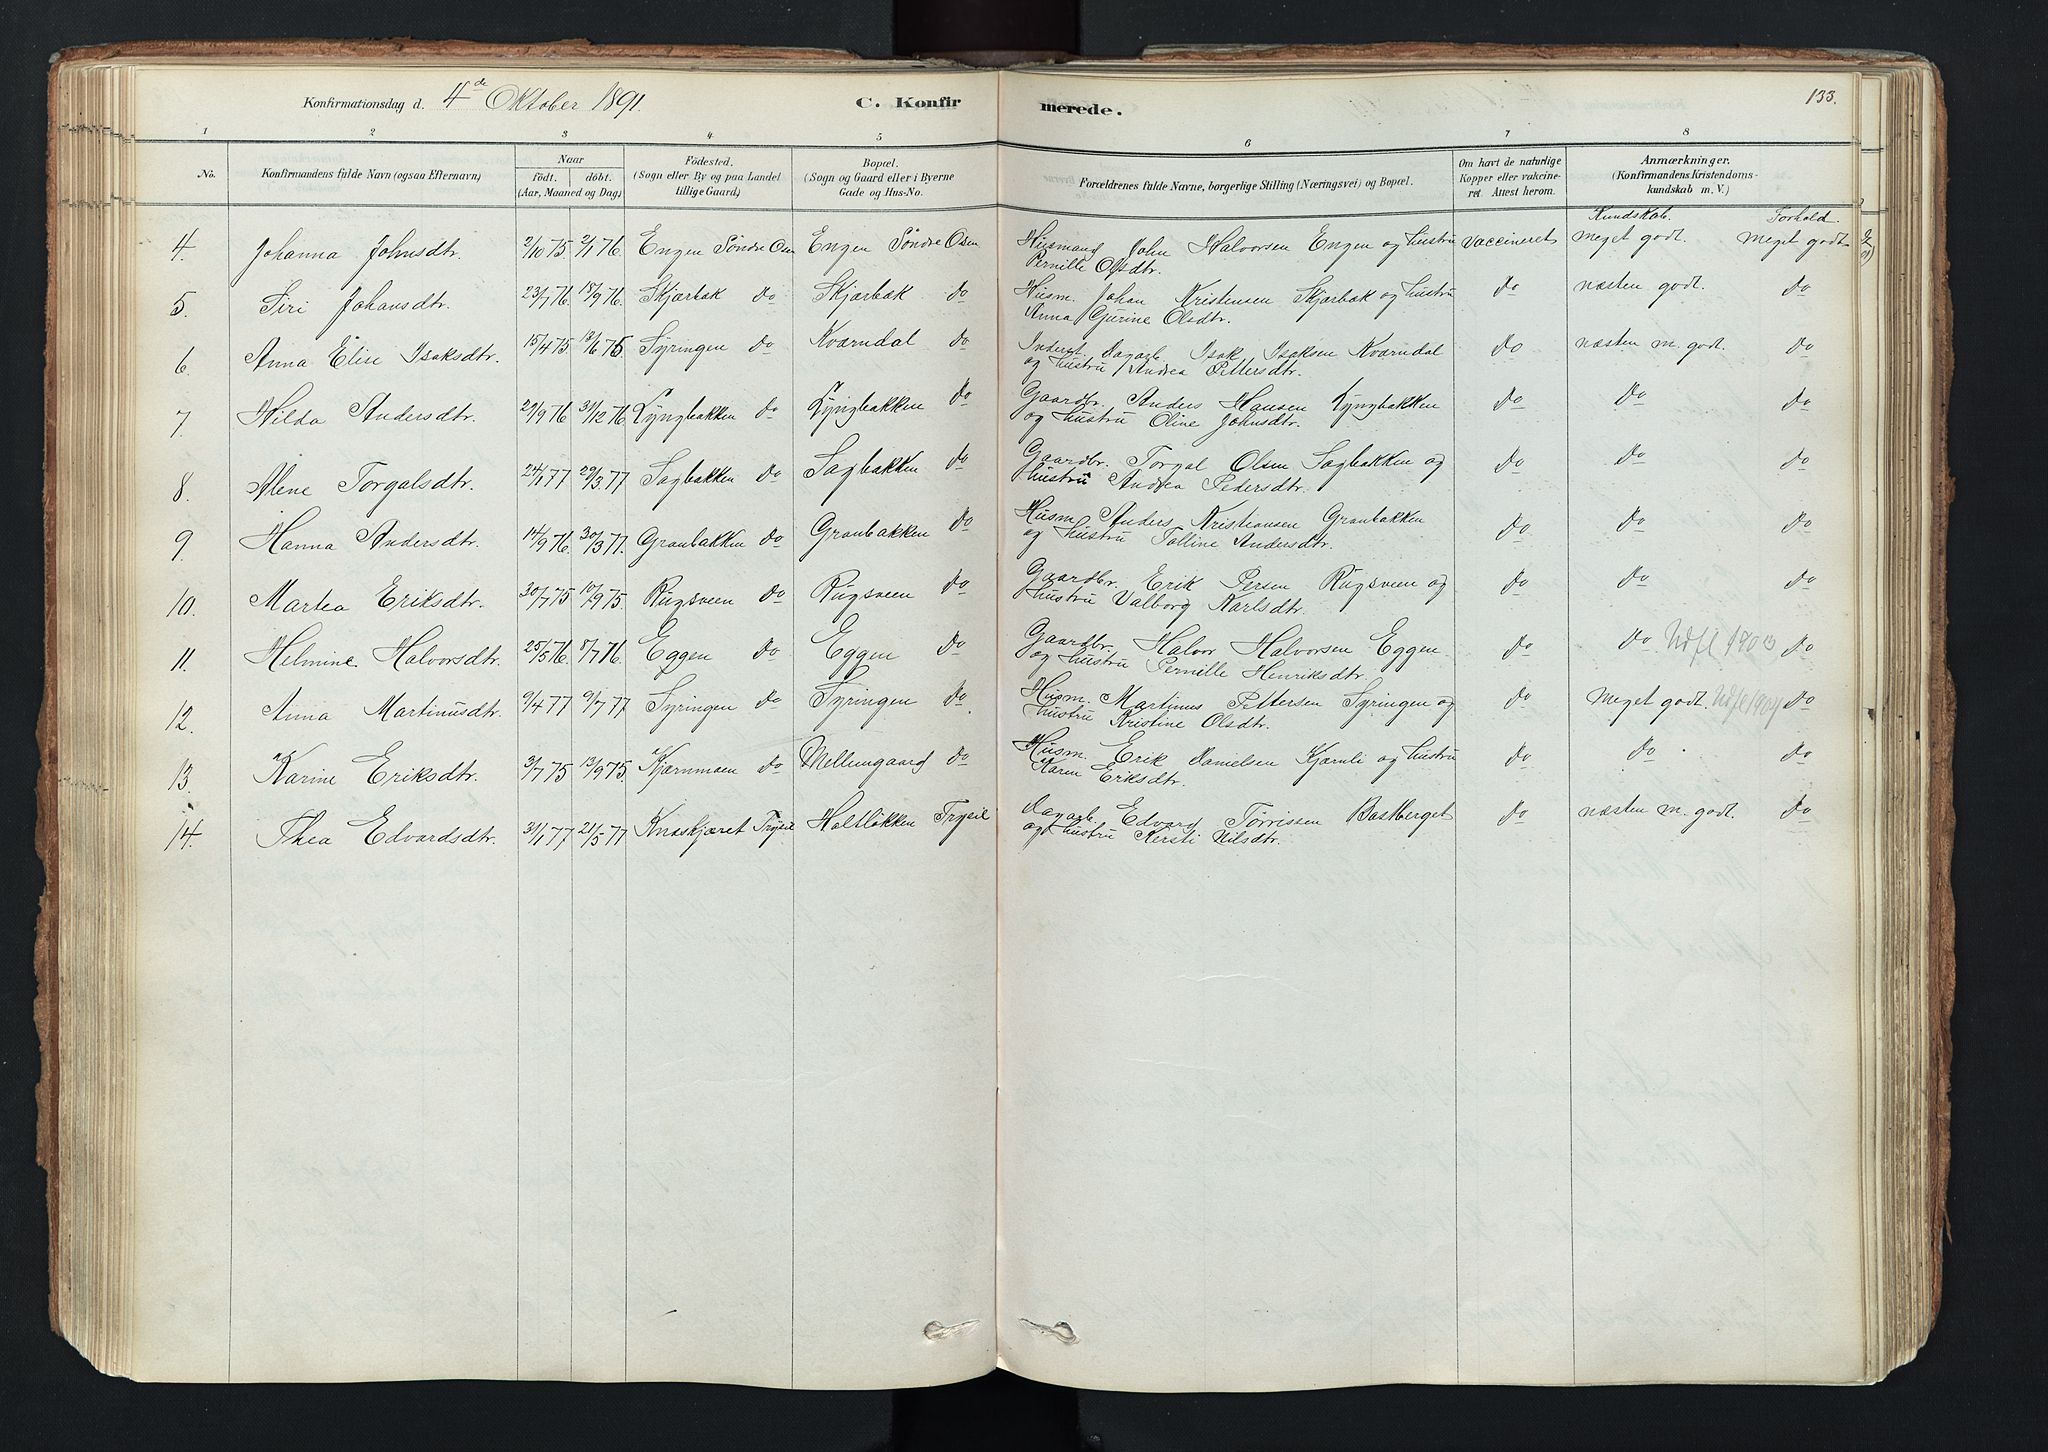 Konfirmationsdag d. 4de Oktober 1891. C. Konfirmerede. 133.
1 2 3 4 5 6 7 8
No. Konfirmandens fulde Navn (ogsaa Efternavn) Naar Født. døbt. (Aar, Maaned og Dag) Fødested. (Sogn eller By og paa Landet tillige Gaard) Bopæl. (Sogn og Gaard eller i Byerne Gade og Hus-No. Forældrenes fulde Navne, borgerlige Stilling (Næringsvei) og Bopæl. Om havt de naturlige Kopper eller vakcineret. Attest herom. Anmærkninger. (Konfirmandens Kristendomskundskab m. V.)
Kundskab. Forhold.
4. Johanna Johnsdtr. 2/10 75 2/1 76 Engen Søndre Osen Engen Søndre Osen Husmand John Halvorsen Engen og hustru vaccineret meget godt. meget godt
Pernille Olsdtr.
5. Siri Johansdtr. 23/7 76 18/9 76 Skjærbæk do Skjærbæk do Husm. Johan Kristensen Skjærbæk og hustru do næsten godt. do
Anna Gurine Olsdtr.
6. Anna Elise Isaksdtr. 15/4 75 13/6 75 Syringen do Kværndal do Inderst. Dagarb. Isak Isaksen Kværndal do næsten m. godt. do
og hustru Andrea Pettersdtr.
7. Hilda Andersdtr. 22/9 76 31/12 76 Lyngbakken do Lyngbakken do Gaardbr. Anders Hansen Lyngbakken do do do
og hustru Oline Johnsdtr.
8. Alene Torgalsdtr. 24/1 77 29/3 77 Sagbakken do Sagbakken do Gaardbr. Torgal Olsen Sagbakken og do do do
hustru Andrea Pedersdtr.
9. Hanna Andersdtr. 14/9 76 30/3 77. Granbakken do Granbakken do Husm. Anders Kristiansen Granbakken do do do
og hustru Tolline Andersdtr.
10. Martea Eriksdtr. 30/7 75 19/9 75. Rugsveen do Rugsveen do Gaardbr. Erik Persen Rugsveen og do do do
hustru Valborg Karlsdtr.
11. Helmine Halvorsdtr. 25/5 76 8/7 76. Eggen do Eggen do Gaardbr. Halvor Halvorsen Eggen do do Udfl 1903 do
og hustru Pernille Henriksdtr.
12. Anna Martinusdtr. 9/4 77 9/7 77 Syringen do Syringen do Husm. Martinus Pettersen Syringen og do meget godt. Udfl 1904 do
hustru Kristine Olsdtr.
13. Karine Eriksdtr. 3/7 75 13/9 75. Kjærnmoen do Mellemgaard do Husm. Erik Danielsen Kjærnli og hustru do do do
Karen Eriksdtr.
14. Thea Edvardsdtr. 31/1 77 21/5 77 Knæskjæret Trysil Holtløkken Trysil Dagarb. Edvard Tørrissen Bastberget do næsten m. godt. do
og hustru Kersti Nilsdtr.